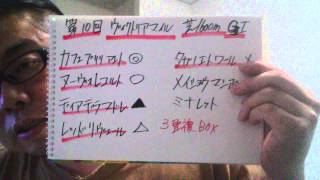 第10回 ヴィクトリアマイル 芝1600m GI
カフェブリリアント ◎
ヌーヴォレコルト ○
ディアデラマドレ ▲
レッドリヴェール △
メイショウマンボ
ミナレット
3連複 BOX